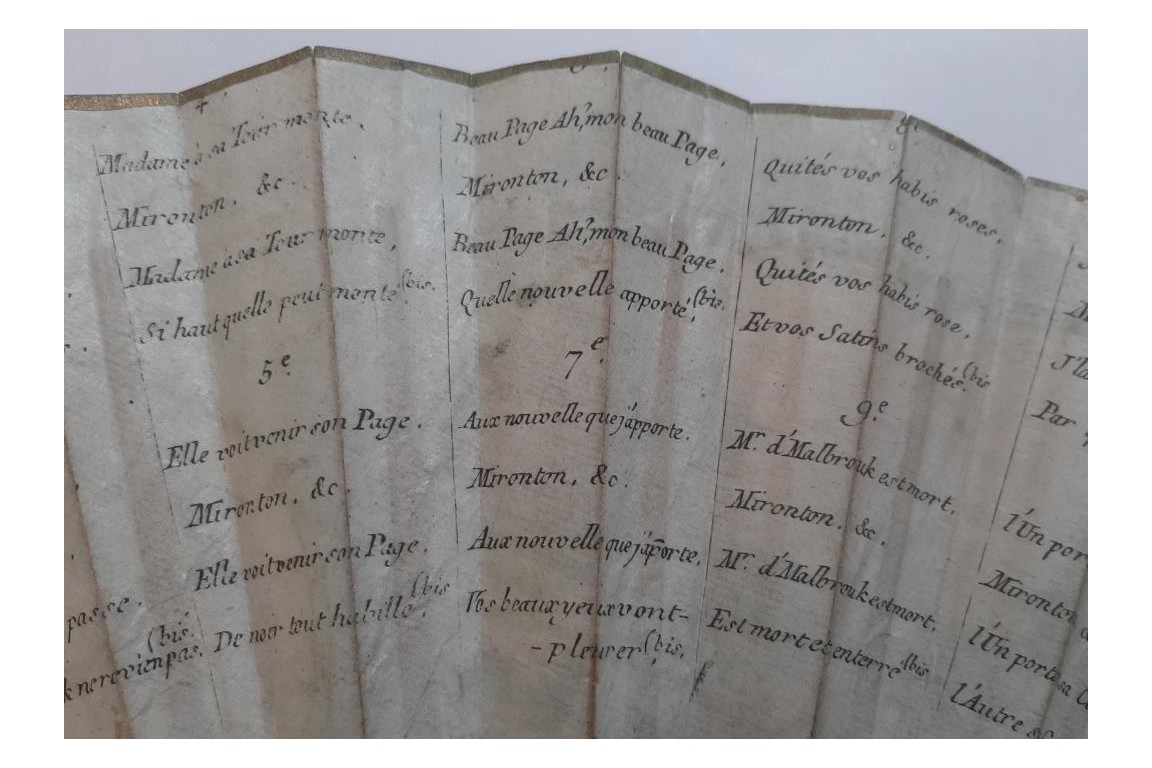 passe.
(bis.
k ne revien pas.
4
Madame à sa Tour monte.
Mironton, &c.
Madame à sa Tour monte,
Si haut quelle peut monte (bis.
5e.
Elle voit venir son Page.
Mironton, &c.
Elle voit venir son Page.
De noir tout habillé. (bis
Beau Page Ah, mon beau Page,
Mironton, &c.
Beau Page Ah, mon beau Page,
Quelle nouvelle apporté, (bis.
7e.
Aux nouvelle que j'apporte.
Mironton, &c.
Aux nouvelle que j'aporte.
Vos beaux yeux vont-
- pleurer (bis.
8e.
Quités vos habis roses.
Mironton, &c.
Quités vos habis rose.
Et vos Satins brochés. (bis
9e.
Mr. d'Malbrouk est mort.
Mironton. &c.
Mr. d'Malbrouk est mort.
Est mort et enterré (bis
J'la
Par
l'Un por
Mironton
l'Un porte sa
l'Autre